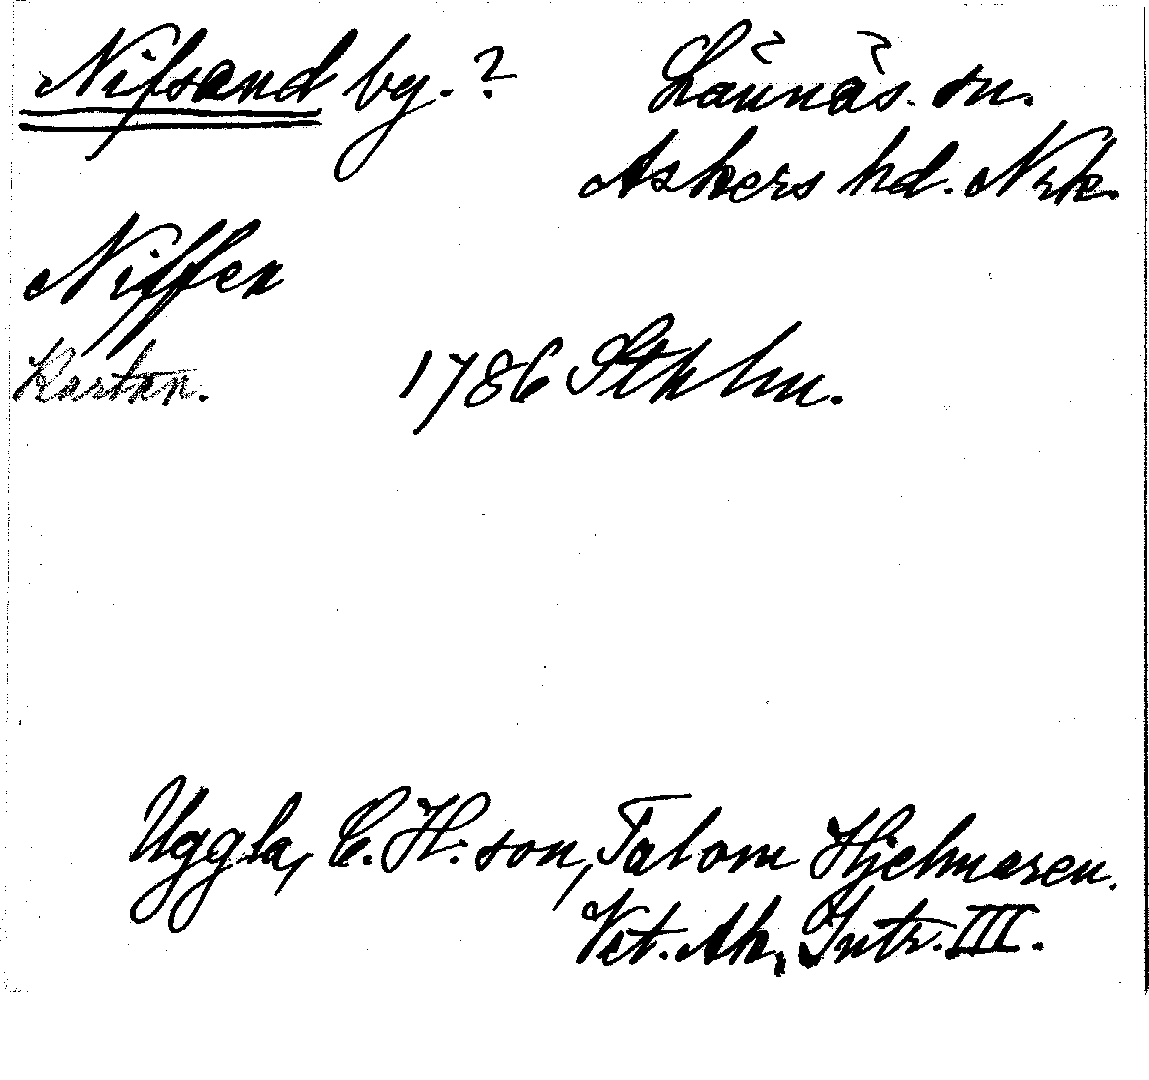 Nifsand by.? Lännäs. sn.
Askers hd. Nrk.
Niffen
Kartan. 1786 Sthlm.
Uggla, C. H:son, Tal om Hjelmaren.
Vet. Ak, Intr. III.